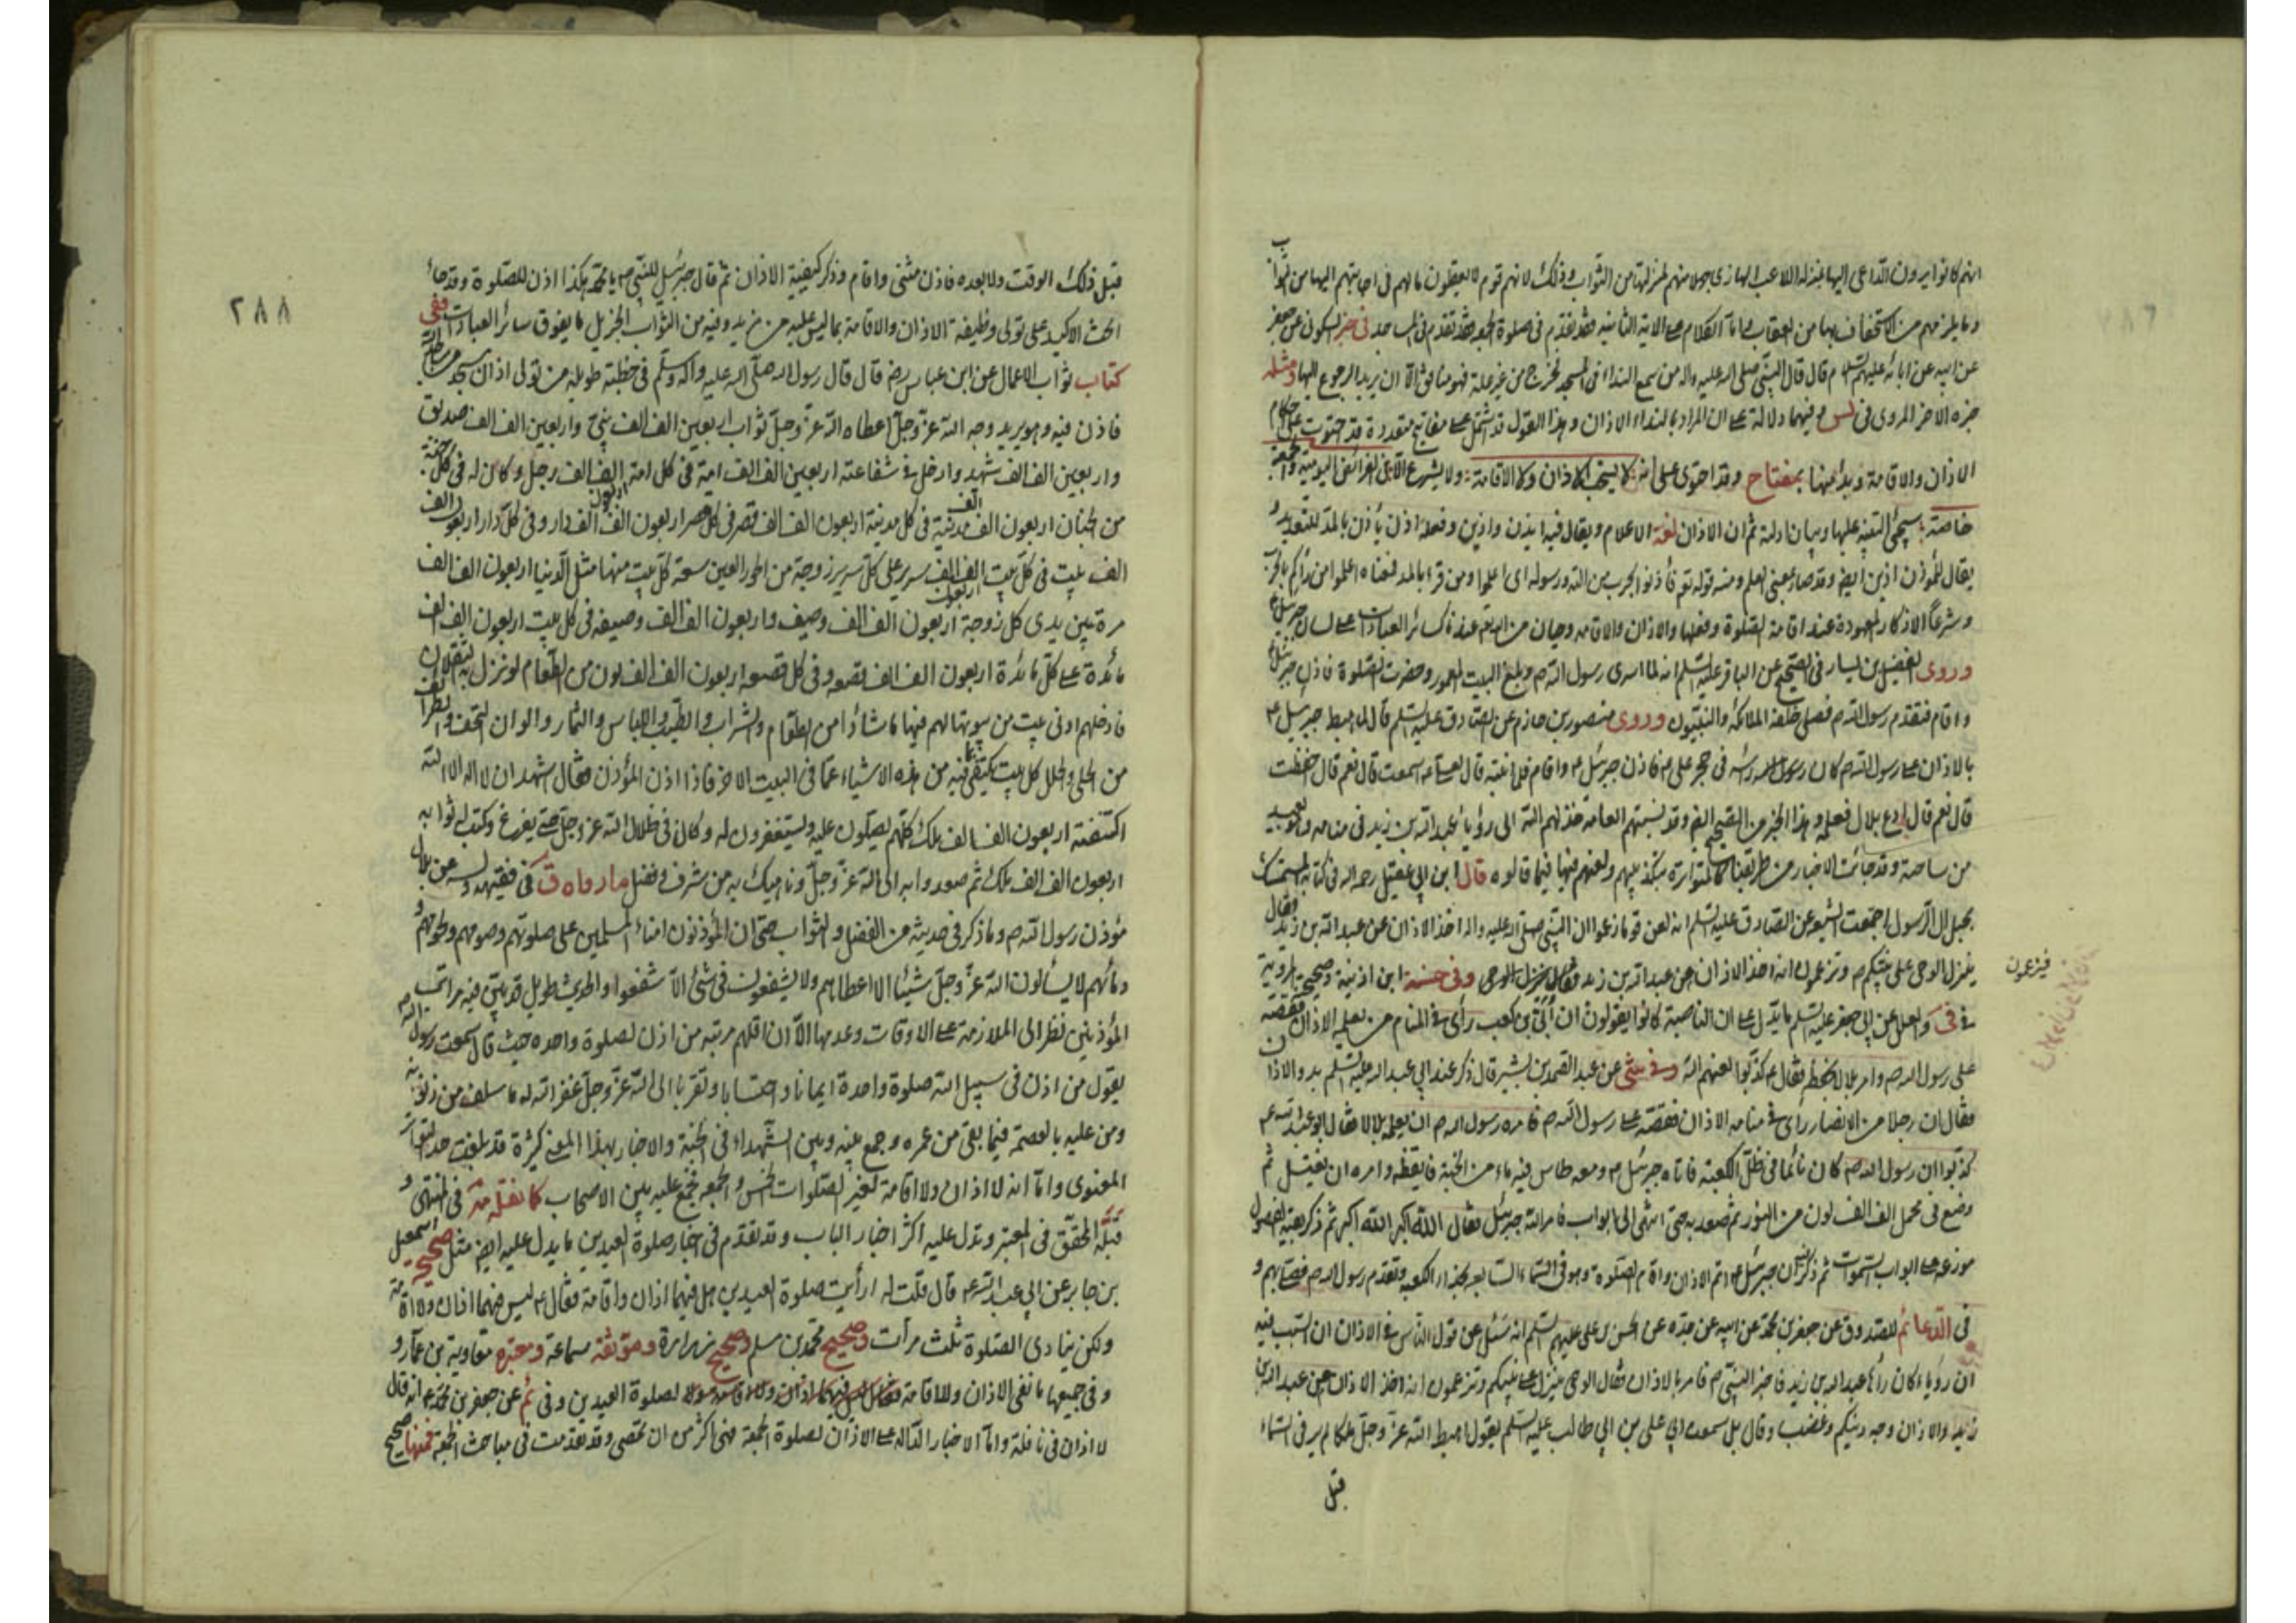 انهم كانوا يرون الداعى اليها بمنزلة اللاعب الهازى جهلا منهم لمنزلتها من الثواب وذلك لانهم قوم لا يعقلون ما لهم فى اجابتهم اليها من الثواب
وما يلزمهم من الاستخفاف بها من العقاب واما الكلام على الاية الثانية فقد تقدم فى صلوة الجمعة وقد تقدم فى المساجد فى خبر السكونى عن جعفر
عن ابيه عن ابائه عليهم السلام قال قال النبى صلى الله عليه واله من سمع النداء فى المسجد فخرج من غير علة فهو منافق الا ان يريد الرجوع اليها ومثله
خبره الاخر المروى فى لس وفيهما دلالة على ان المراد بالنداء الاذان وهذا القول قد اشتمل على مفاتيح متعددة قد احتوت على احكام
الاذان والاقامة ونبدأ منها بمفتاح وقد احتوى على انه لا يستحب الاذان ولا الاقامة ولا يشرع الا فى الفرائض اليومية والجمعة
خاصة سيجئ التنبيه عليها وبيان ادلته ثم ان الاذان لغة الاعلام ويقال فيه ايذن واذين وفعله اذن يأذن بالمد للتعدية و
يقال للمؤذن اذين ايض وقد صار بمعنى العلم ومنه قوله تع فأذنوا بحرب من الله ورسوله اى اعلموا ومن قرء بالمد فمعناه اعلموا من ورائكم بالحرب
وشرعا الاذكار المعهودة عند اقامة الصلوة وفعلها والاذان والاقامة وحيان من الله تع عندنا كسائر العبادات على لسان جبرئيل ع
وروى الفضيل بن يسار فى الصحيح عن الباقر عليه السلم انه لما اسرى رسول الله ص وبلغ البيت المعمور وحضرت الصلوة فاذن جبرئيل ع
واقام فتقدم رسول الله ص فصلى خلفه الملائكة والنبيون وروى منصور بن حازم عن الصادق عليه السلم قال لما هبط جبرئيل ع
بالاذان على رسول الله ص كان رسول الله راسه فى حجر على ع فاذن جبرئيل ع واقام فلما انتبه قال لعلى ع سمعت قال نعم قال حفظت
قال نعم قال ادع بلال فعلمه وهذا الخبر من الصحيح ايض وقد نسبتهم العامة خذلهم الله الى رؤيا عبدالله بن زيد فى منامه
من ساحته وقد جائت الاخبار من طريقنا كالمتواترة بتكذيبهم ولعنهم فيها فيما قالوه قال ابن ابى عقيل رحمه الله فى كتابه المستمسك
بحبل ال الرسول اجتمعت الشيعة عن الصادق عليه السلم انه لعن قوما زعموا ان النبى صلى الله عليه واله اخذ الاذان عن عبدالله بن زيد فقال
ينزل الوحى على نبيكم ص وتزعمون انه اخذ الاذان عن عبدالله بن زيد وفى حسنة ابن اذينة وصحيحه المروية
فى فى والعلل عن ابى جعفر عليه السلم ما يدل على ان الناصبة كانوا يقولون ان ابى بن كعب رأى فى المنام من يعلم الاذان فقصه
على رسول الله ص وامر بلالا بحفظه فقال ع كذبوا لعنهم الله وفى شى عن عبد الصمد بن بشير قال ذكر عند ابى عبدالله عليه السلم بدو الاذان
فقال ان رجلا من الانصار رأى فى منامه الاذان فقصه على رسول الله ص فامره رسول الله ص ان يعلمه بلالا فقال ابو عبدالله ع
كذبوا ان رسول الله ص كان نائما فى ظل الكعبة فاتاه جبرئيل ع ومعه طاس فيه ماء من الجنة فايقظه وامره ان يغتسل ثم
وضع فى محمل الف الف لون من النور ثم صعد به حتى انتهى الى ابواب فامر الله جبرئيل فقال الله اكبر الله اكبر ثم ذكر بقية الفصول
موزعة على ابواب السموات ثم ذكر ان جبرئيل ع اتم الاذان واقام الصلوة وهو فى السماء السابعة بحذاء الكعبة وتقدم رسول الله ص فصلى بهم و
فى الدعائم للصدوق عن جعفر بن محمد عن ابيه عن جده عن الحسين بن على عليهم السلم انه سئل عن قول الناس فى الاذان ان السبب فيه
ان رؤياء كان رأها عبدالله بن زيد فاخبر النبى ص فامر بالاذان فقال الوحى ينزل على نبيكم وتزعمون انه اخذ الاذان عن عبدالله بن
زيد والاذان وجه دينكم وغضب وقال بل سمعت ابى على بن ابى طالب عليه السلم يقول اهبط الله عز وجل ملكا لم ير فى السماء
قبل
فيزعمون
٢٨٨
قبل ذلك الوقت ولا بعده فاذن مثنى واقام وذكر كيفية الاذان ثم قال جبرئيل للنبى ص يا محمد هكذا اذن للصلوة وقد جاء
الحث الاكيد على تولى وظيفة الاذان والاقامة بما ليس عليه من مزيد وفيه من الثواب الجزيل ما يفوق سائر العبادات ففى
كتاب ثواب الاعمال عن ابن عباس رض قال قال رسول الله صلى الله عليه واله وسلم فى خطبته طويلة من تولى اذان مسجد من مساجد الله
فاذن فيه وهو يريد وجه الله عز وجل اعطاه الله عز وجل ثواب اربعين الف الف نبى واربعين الف الف صديق
واربعين الف الف شهيد وادخل فى شفاعته اربعين الف الف امة فى كل امة اربعون الف الف رجل وكان له فى كل جنة
من الجنان اربعون الف الف مدينة فى كل مدينة اربعون الف الف قصر فى كل قصر اربعون الف الف دار وفى كل دار اربعون الف
الف بيت فى كل بيت اربعون الف الف سرير على كل سرير زوجة من الحور العين سعة كل بيت منها مثل الدنيا اربعون الف الف
مرة بين يدى كل زوجة اربعون الف الف وصيف واربعون الف الف وصيفة فى كل بيت اربعون الف الف
مائدة على كل مائدة اربعون الف الف قصعة وفى كل قصعة اربعون الف الف لون من الطعام لو نزل به الثقلان
فادخلهم ادنى بيت من بيوتها لهم فيها ما شاؤا من الطعام والشراب والطيب واللباس والثمار والوان التحف والطرائف
من الحلى والحلل كل بيت يكتفى بما فيه من هذه الاشياء عما فى البيت الاخر فاذا اذن المؤذن فقال اشهد ان لا اله الا الله
اكتنفته اربعون الف الف ملك كلهم يصلون عليه ويستغفرون له وكان فى ظلال الله عز وجل حتى يفرغ وكتب له ثوابه
اربعون الف الف ملك ثم صعدوا به الى الله عز وجل وناهيك به من شرف وفضل ما رواه ق فى فقيهه عن بلال
مؤذن رسول الله ص وما ذكر فى حديثه من الفضل والثواب حتى ان المؤذنون امناء المسلمين على صلوتهم وصومهم ولحومهم و
دمائهم لا يسألون الله عز وجل شيئا الا اعطاهم ولا يشفعون فى شئ الا شفعوا والحديث طويل قد بين فيه مراتب
المؤذنين نظرا الى الملازمة على الاوقات وعدمها الا ان اقلهم مرتبه من اذن لصلوة واحده حيث قال سمعت رسول الله ص
يقول من اذن فى سبيل الله صلوة واحدة ايمانا واحتسابا وتقربا الى الله عز وجل غفر الله له ما سلف من ذنوبه
ومن عليه بالعصمة فيما بقى من عمره وجمع بينه وبين الشهداء فى الجنة والاخبار بهذا المعنى كثيرة قد بلغت حد التواتر
المعنوى واما انه لا اذان ولا اقامة لغير الصلوات الخمس والجمعة فمجمع عليه بين الاصحاب كما نقله مة فى المنتهى و
قبله المحقق فى المعتبر وتدل عليه اكثر اخبار الباب وقد تقدم فى اخبار صلوة العيدين ما يدل عليه ايض مثل صحيح اسمعيل
بن جابر عن ابى عبدالله ع قال قلت له ارأيت صلوة العيدين هل فيهما اذان واقامة فقال ع ليس فيهما اذان ولا اقامة
ولكن ينادى الصلوة ثلث مرات وصحيح محمد بن مسلم وصحيح زرارة وموثقة سماعة ومعتبره معاوية بن عمار و
وفى جميعها ما نفى الاذان والاقامة لصلوة العيدين وفى ئم عن جعفر بن محمد ع انه قال
لا اذان فى نافلة واما الاخبار الدالة على الاذان لصلوة الجمعة فهى اكثر من ان تحصى وقد تقدمت فى مباحث الجمعة فمنها صحيح